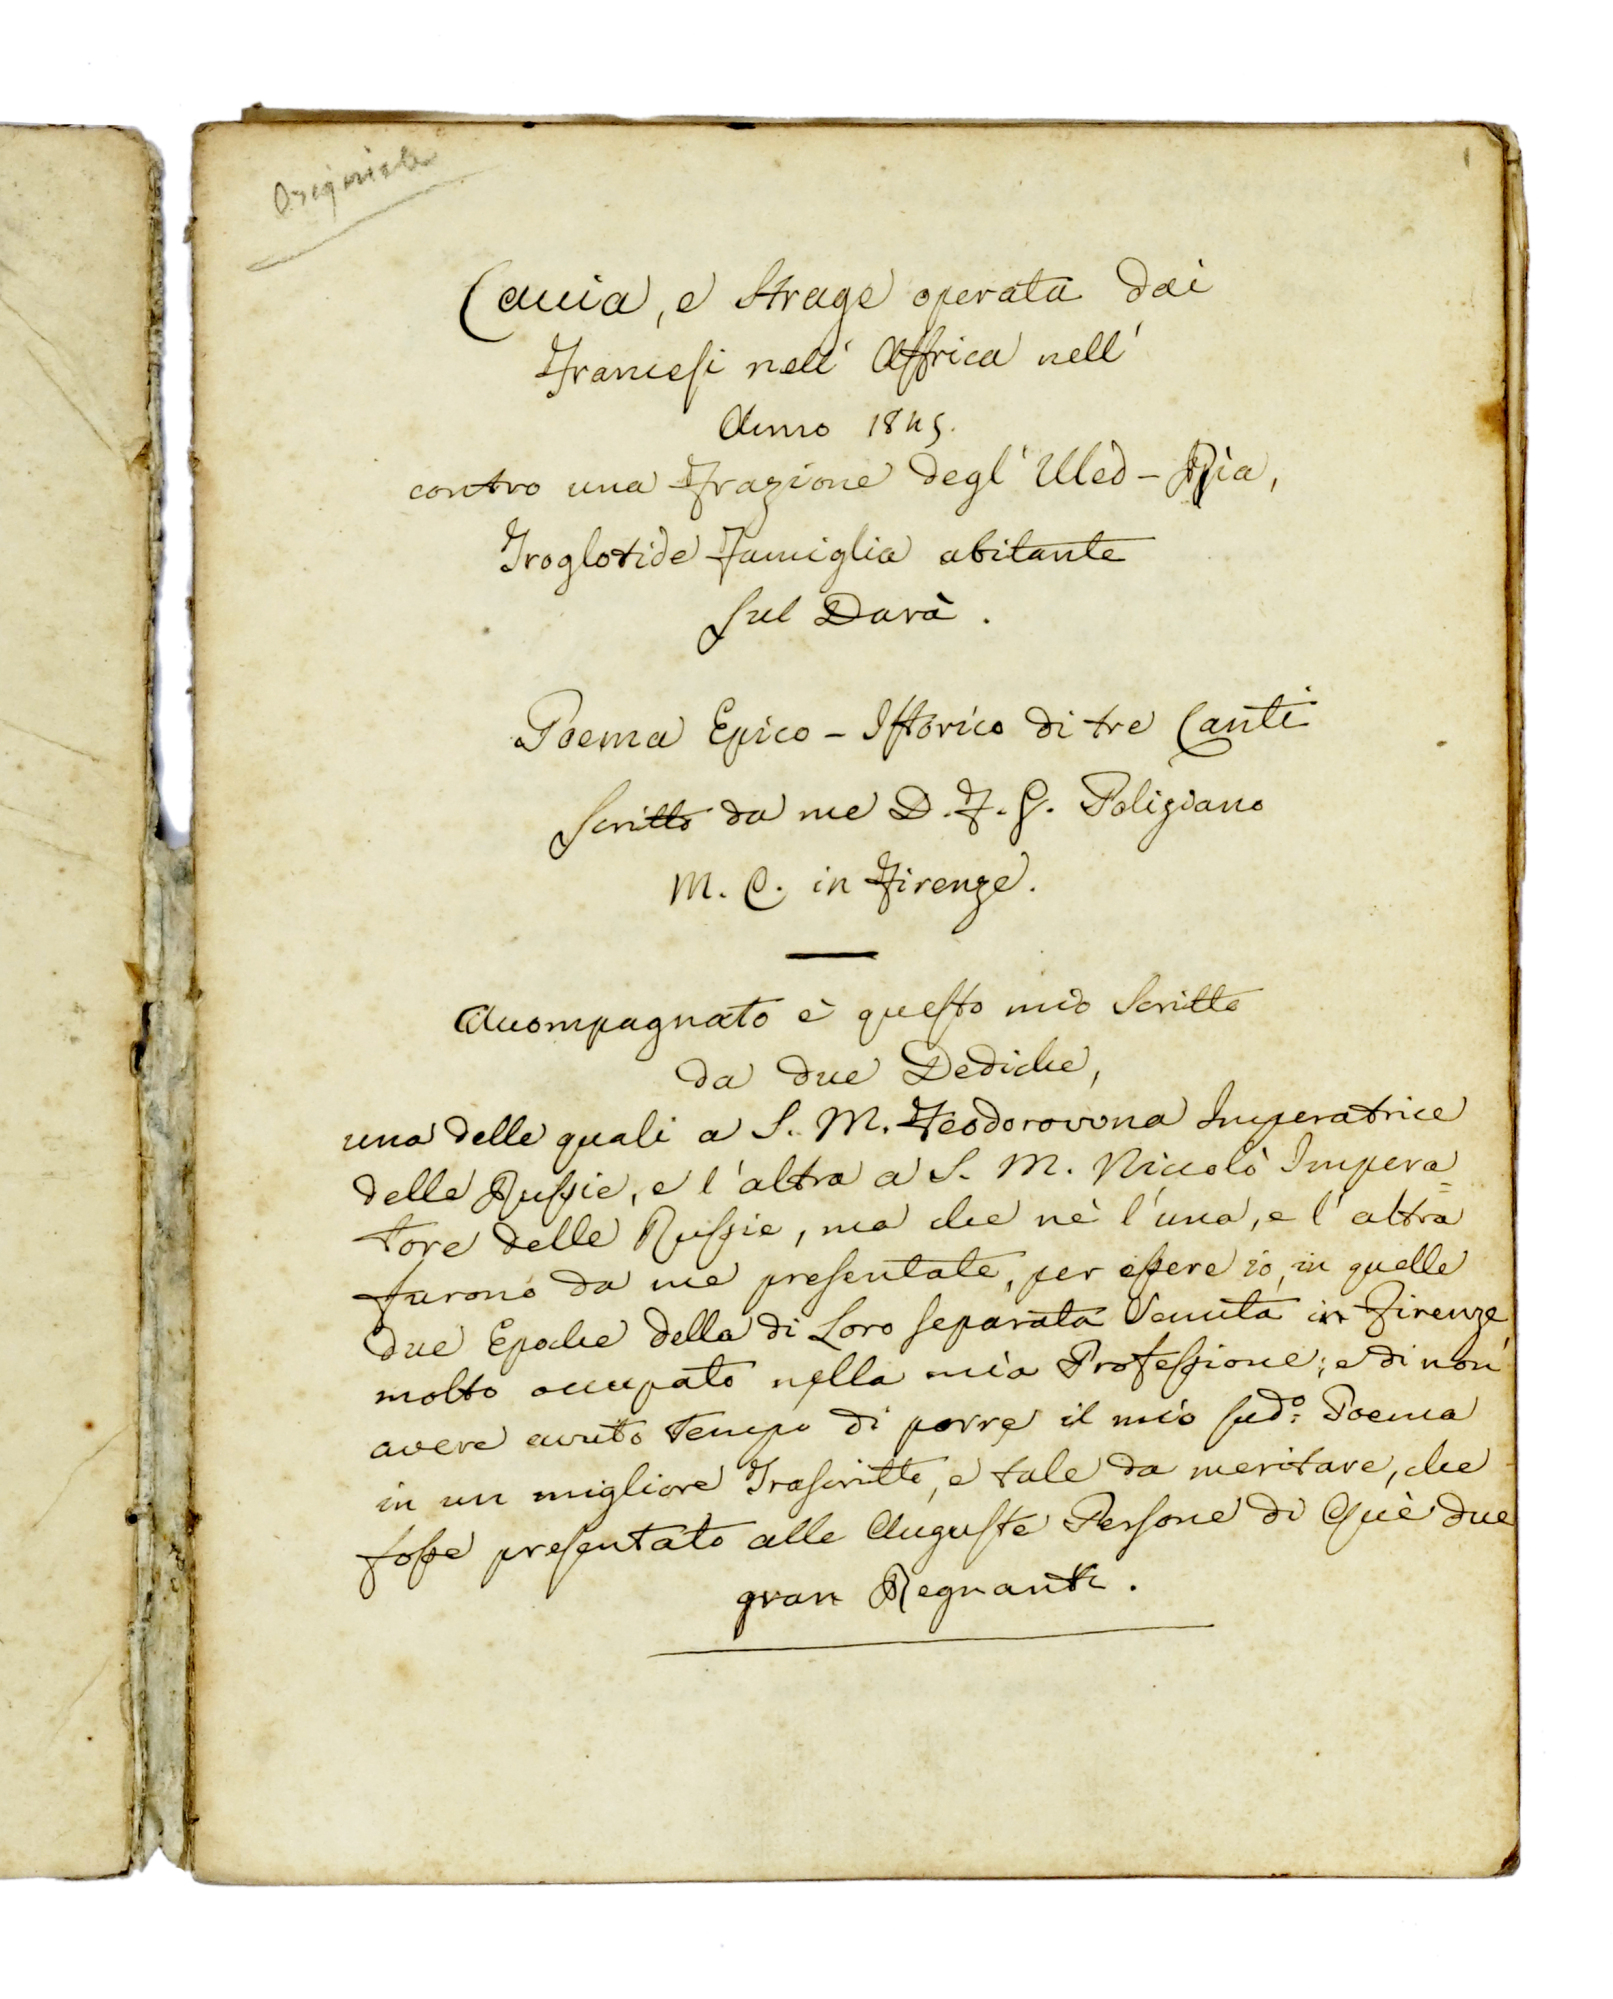 Originale
1
Caccia, e Strage operata dai
Francesi nell' Affrica nell'
Anno 1845.
contro una Frazione degl' Uled-Ria,
Troglotide Famiglia abitante
sul Darà.
Poema Epico-Istorico di tre Canti
Scritto da me D. F. G. Poliziano
M. C. in Firenze.
Accompagnato è questo mio Scritto
da due Dediche,
una delle quali a S. M. Feodorovona Imperatrice
delle Russie, e l'altra a S. M. Niccolò Impera=
tore delle Russie, ma che nè l'una, e l'altra
furono da me presentate, per essere io, in quelle
due Epoche della di Loro separata Venuta in Firenze
molto occupato nella mia Professione; e di non
avere avuto Tempo di porre il mio sudo: Poema
in un migliore Trascritto, e tale da meritare, che
fosse presentato alle Auguste Persone di Què due
gran Regnanti.